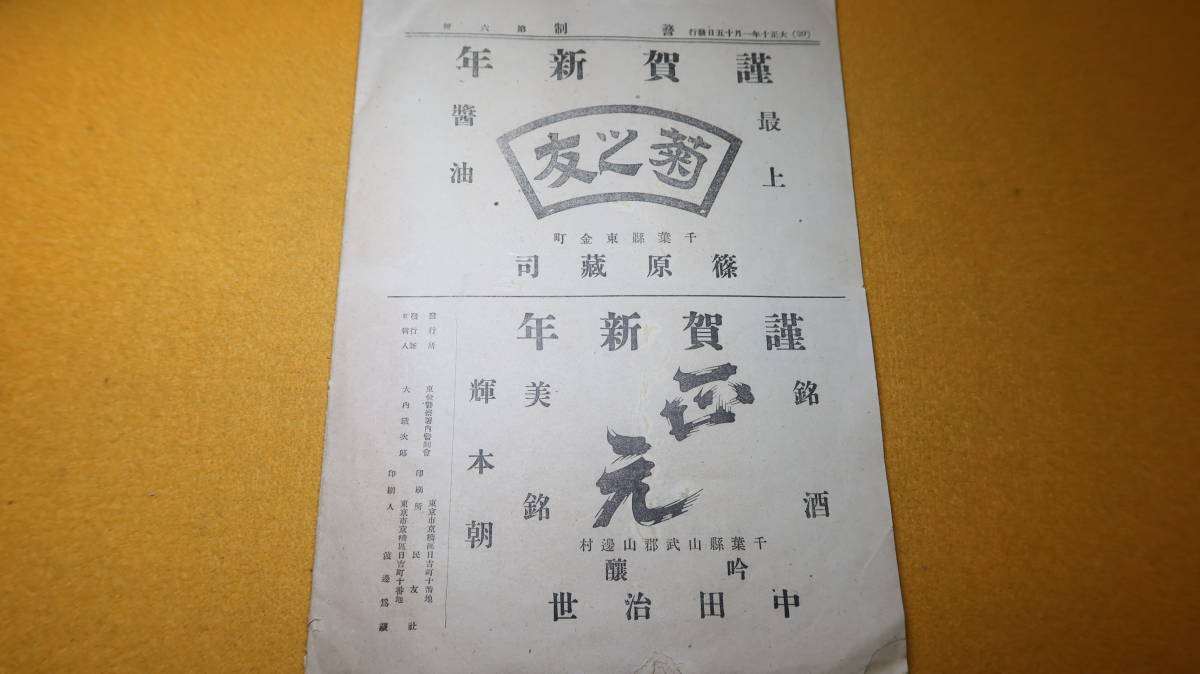 (20) 大正十年一月十五日發行 警制 第六號
謹賀新年
最上
菊之友
醬油
千葉縣東金町
篠原藏司
謹賀新年
銘酒
正元
美銘
輝本朝
千葉縣山武郡山邊村
吟釀
中田治世
發行所 東金警察署內警制會
大內 次郎
印刷所 東京市京橋區日吉町十番地 民友社
印刷人 東京市京橋區日吉町十番地 渡邊爲藏